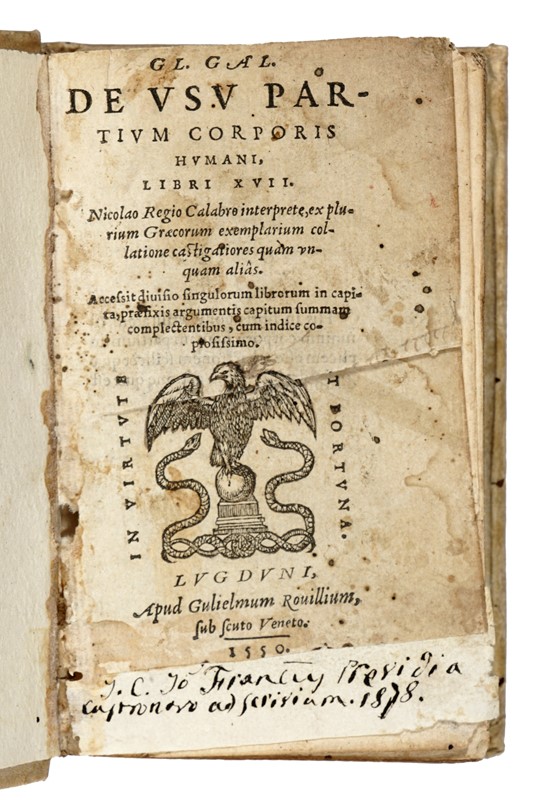 GL. GAL.
DE VSV PAR-
TIVM CORPORIS
HVMANI,
LIBRI XVII.
Nicolao Regio Calabro interprete, ex plu-
rium Græcorum exemplarium col-
latione castigatiores quàm vn-
quam aliâs.
Accessit diuisio singulorum librorum in capi-
ta, præfixis argumentis capitum summam
complectentibus, cum indice co-
piosissimo.
IN VIRTVTE
ET FORTVNA.
LVGDVNI,
Apud Gulielmum Rouillium,
sub scuto Veneto.
1550.
J. C. Jo Franc
1878.